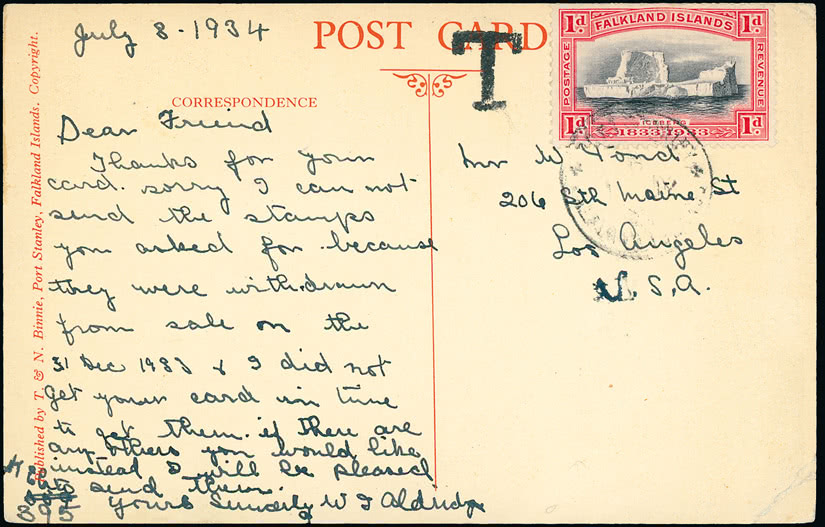 July 8-1934
POST CARD
T
CORRESPONDENCE
Dear Friend
Thanks for your
card. sorry I can not
send the stamps
you asked for because
they were withdrawn
from sale on the
31 Dec 1933 & I did not
get your card in time
to get them. if there are
any others you would like
instead I will be pleased
to send them.
Yours Sincerely W J Aldridge
895
Published by T. & N. Binnie, Port Stanley, Falkland Islands. Copyright.
1d. FALKLAND ISLANDS 1d.
POSTAGE
REVENUE
ICEBERG
1d. 1833-1933 1d.
W Pond
206 Sth Maine St
Los Angeles
U.S.A.